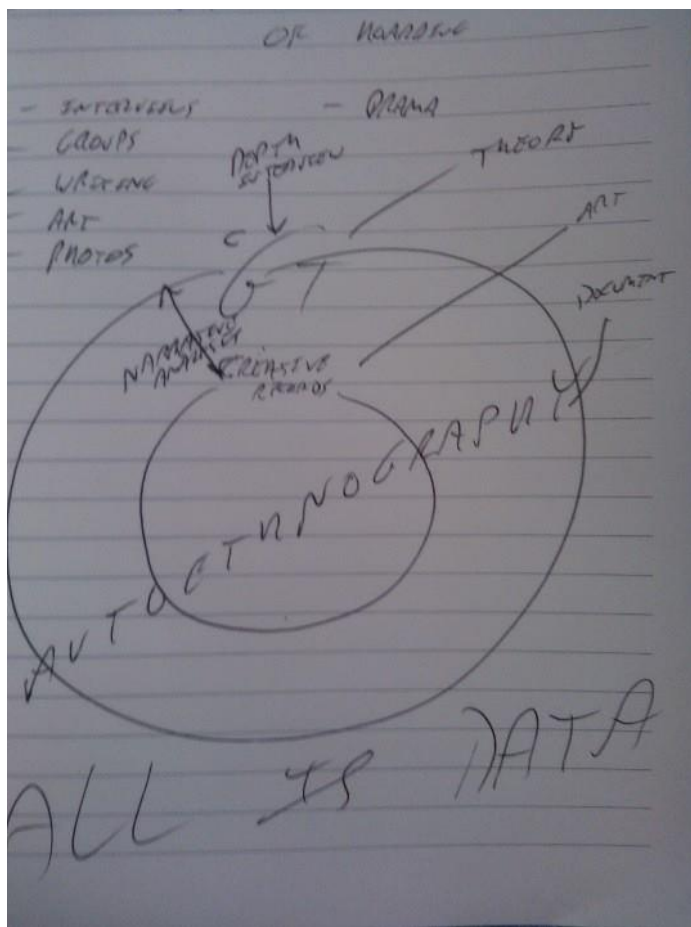 OF HOARDING
- INTERVIEWS - DRAMA
- GROUPS
- WRITING
- ART
- PHOTOS
DEPTH
INTERVIEW
THEORY
ART
DOCUMENT
C
G T
NARRATIVE
ANALYSIS
CREATIVE
AUTOETHNOGRAPHY
ALL IS DATA